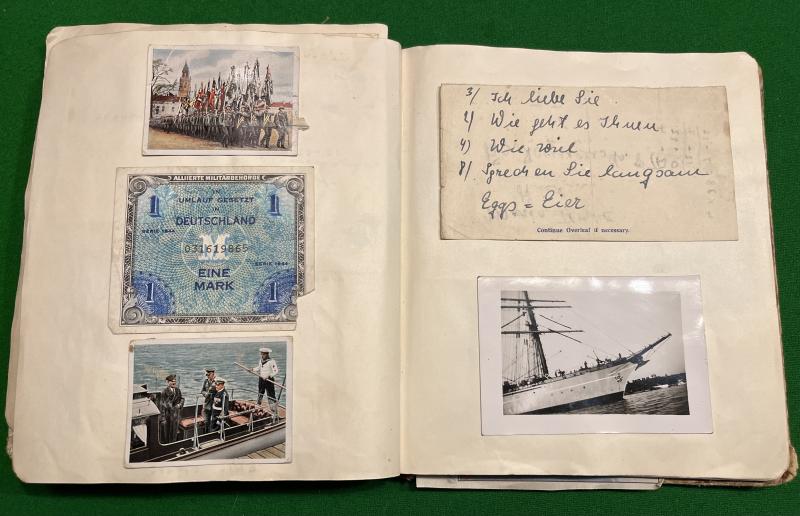 ALLIIERTE MILITÄRBEHÖRDE
IN
UMLAUF GESETZT
IN
DEUTSCHLAND
1 1
SERIE 1944
031619865
M
SERIE 1944
EINE
MARK
1 1
3/ Ich liebe Sie
2/ Wie geht es Ihnen
4) Wie viel
8/. Sprechen Sie langsam
Eggs = Eier
Continue Overleaf if necessary.